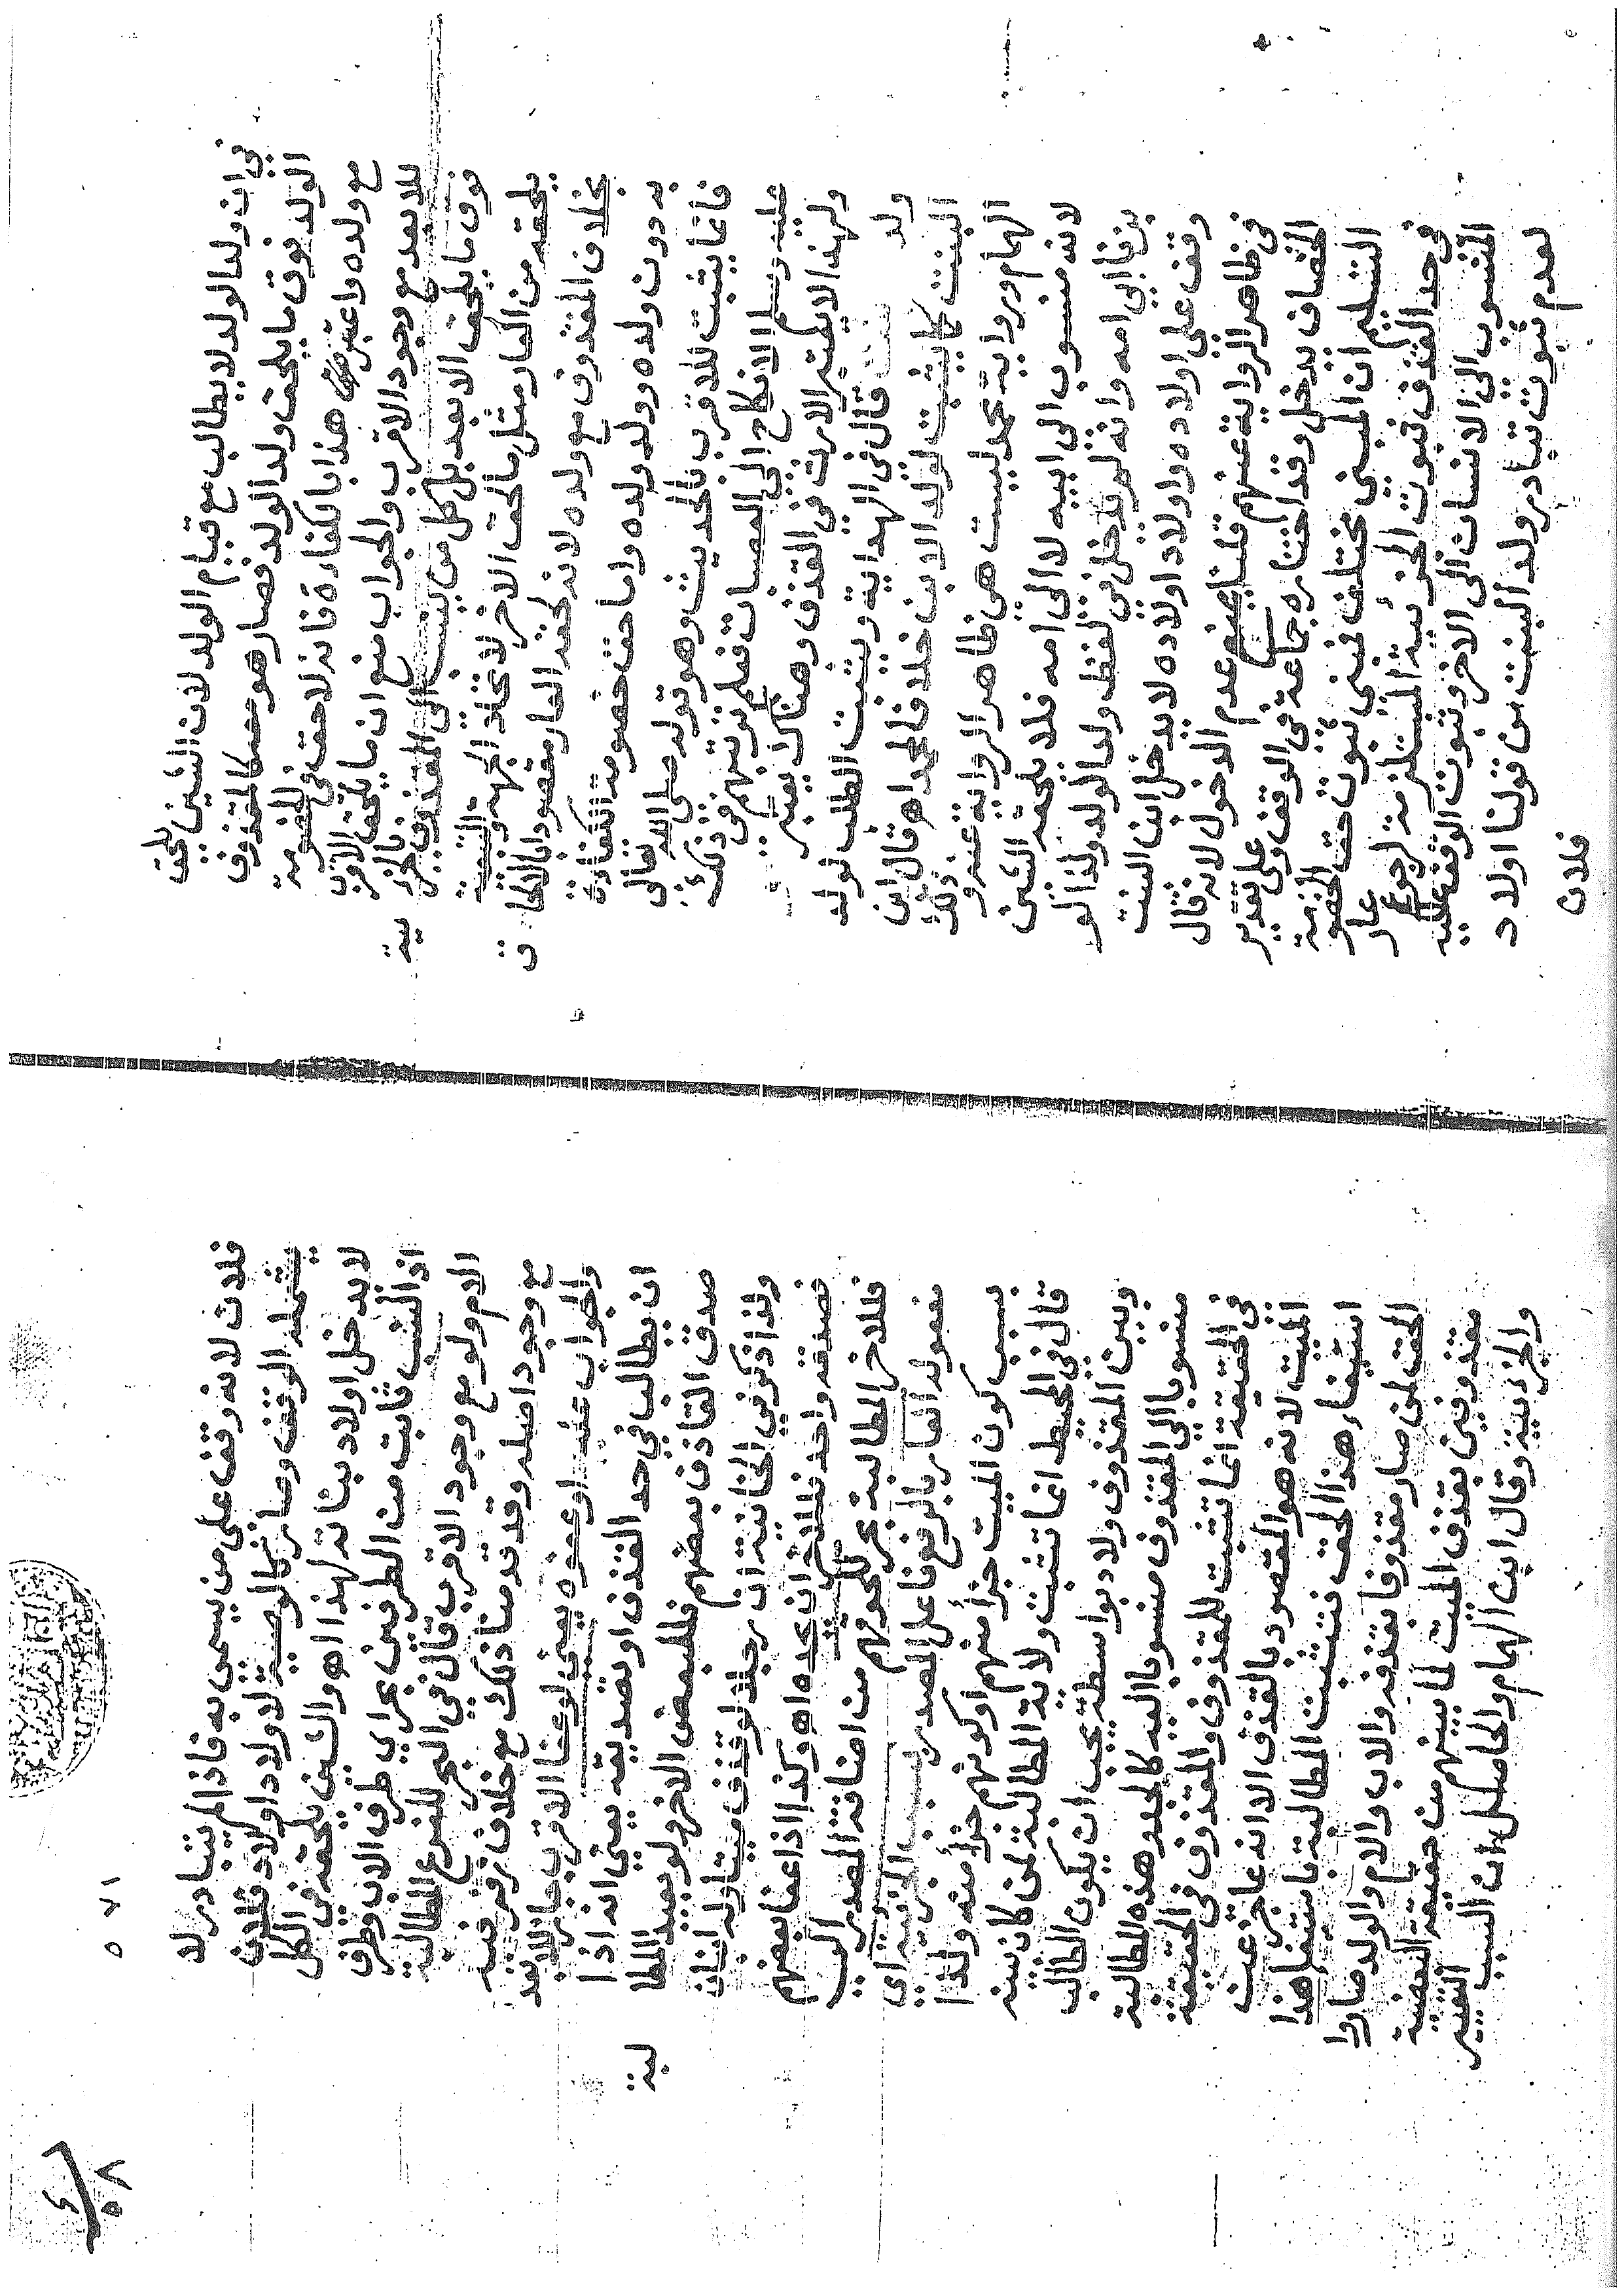 في ان ولد الولد لا يطالب مع قيام الولد لان الشين يلحق
الولد فوق ما يلحق ولد الولد فصار هو حكما لمقذوف
مع ولده واعتبر هذا بالكفاءة فانه لا حق في الخصومة
للابعد مع وجود الاقرب والجواب منع ان ما يلحق الاقرب
فوق ما يلحق الابعد بل كل من ينسب الى المقذوف بالجزئية
يلحقه من العار مثل ما لحق الاخر لاتحاد الجهة وهي
بخلاف المقذوف مع ولده لانه لحقه العار مقصودا بالالحاق
به دون ولده وولد ولده واما حق خصومة الكفاءة
فانما يثبت للاقرب بالحديث وهو قوله صلى الله تعالى
عليه وسلم الانكاح الى العصبات فعلم ترتيبهم في ذلك
ولهذا لا يعتبر الارث في القذف وهناك يعتبر
قال في الهداية ويثبت الطلب لولد ولد
البنت كما يثبت لولد الابن خلافا لمحمد اهـ قال ابن
الهمام ورواية محمد ليست هي ظاهر الرواية عنه وذلك
لانه منسوب الى ابيه لا الى امه فلا يلحقه الشين
بزنا ابي امه وانه لم يدخل في لفظ ولد الولد ولذا لو
وقف على اولاده واولاد اولاده لا يدخل ابن البنت
في ظاهر الرواية عنهم قلنا بمنع عدم الدخول لانه قال
الخصاف يدخل وقد اختاره جماعة في الوقف وعلى تقدير
التسليم ان المبنى مختلف فمبنى ثبوت حق الخصومة
في حد القذف ثبوت الجزئية المستلزمة لرجوع عار
المنسوب الى الانسان الى الاخر وثبوت الوقف عليه
لعدم ثبوت تبادر ولد البنت من قولنا اولاد
فلان
١٧٥
فلان لانه وقف على من يسمى به فاذا لم يتبادر لا
يشمله الوقف وصار كالوصية لاولاد اولاد فلان
لا يدخل اولاد بناته لهذا اهـ والشين يلحقه في الكل
اذ النسب ثابت من الطرفين بحر اي طرف الاب وطرف
الام ولو مع وجود الاقرب قال في البحر للفرع المطالبة
مع وجود اصله وقد قدمنا ذلك مع خلاف زفر فيه
والجواب عليه او عفوه يعني لو عفا الاقرب جاز للابعد
ان يطالب في حد القذف او تصديقه يعني انه اذا
صدق القاذف بعضهم فللبعض الاخر ولو بعيد المطالبة
ولذا ذكر في الخانية ان رجلا لو قذف ميتا وله ابنان
فصدقه واحد فللاخر ان يحده اهـ وكذا اذا عفا بعضهم
فللاخر المطالبة بحر للحوقهم من اضافة المصدر الى
مفعوله العار بالرفع فاعل المصدر بسبب الجزئية اي
بسبب كون الميت جزأ منهم او كونهم جزأ منه ولذا
قال في المحيط انما تثبت ولاية المطالبة لمن كان بينه
وبين المقذوف ولاد بواسطة يجب ان يكون الطالب
منسوبا الى المقذوف منسوبا اليه كالجد وهذه المطالبة
في الحقيقة انما تثبت للمقذوف والمقذوف في الحقيقة
الميت لانه هو المقصود بالقذف الا انه عاجز عن
استيفاء هذا الحق فتثبت المطالبة باستيفاء هذا
الحق لمن صار مقذوفا بقذفه والاب والام والولد صاروا
مقذوفين بقذف الميت لما بينهم من حقيقة البعضية
والجزئية وقال ابن الهمام والحاصل ان السبب التعيير